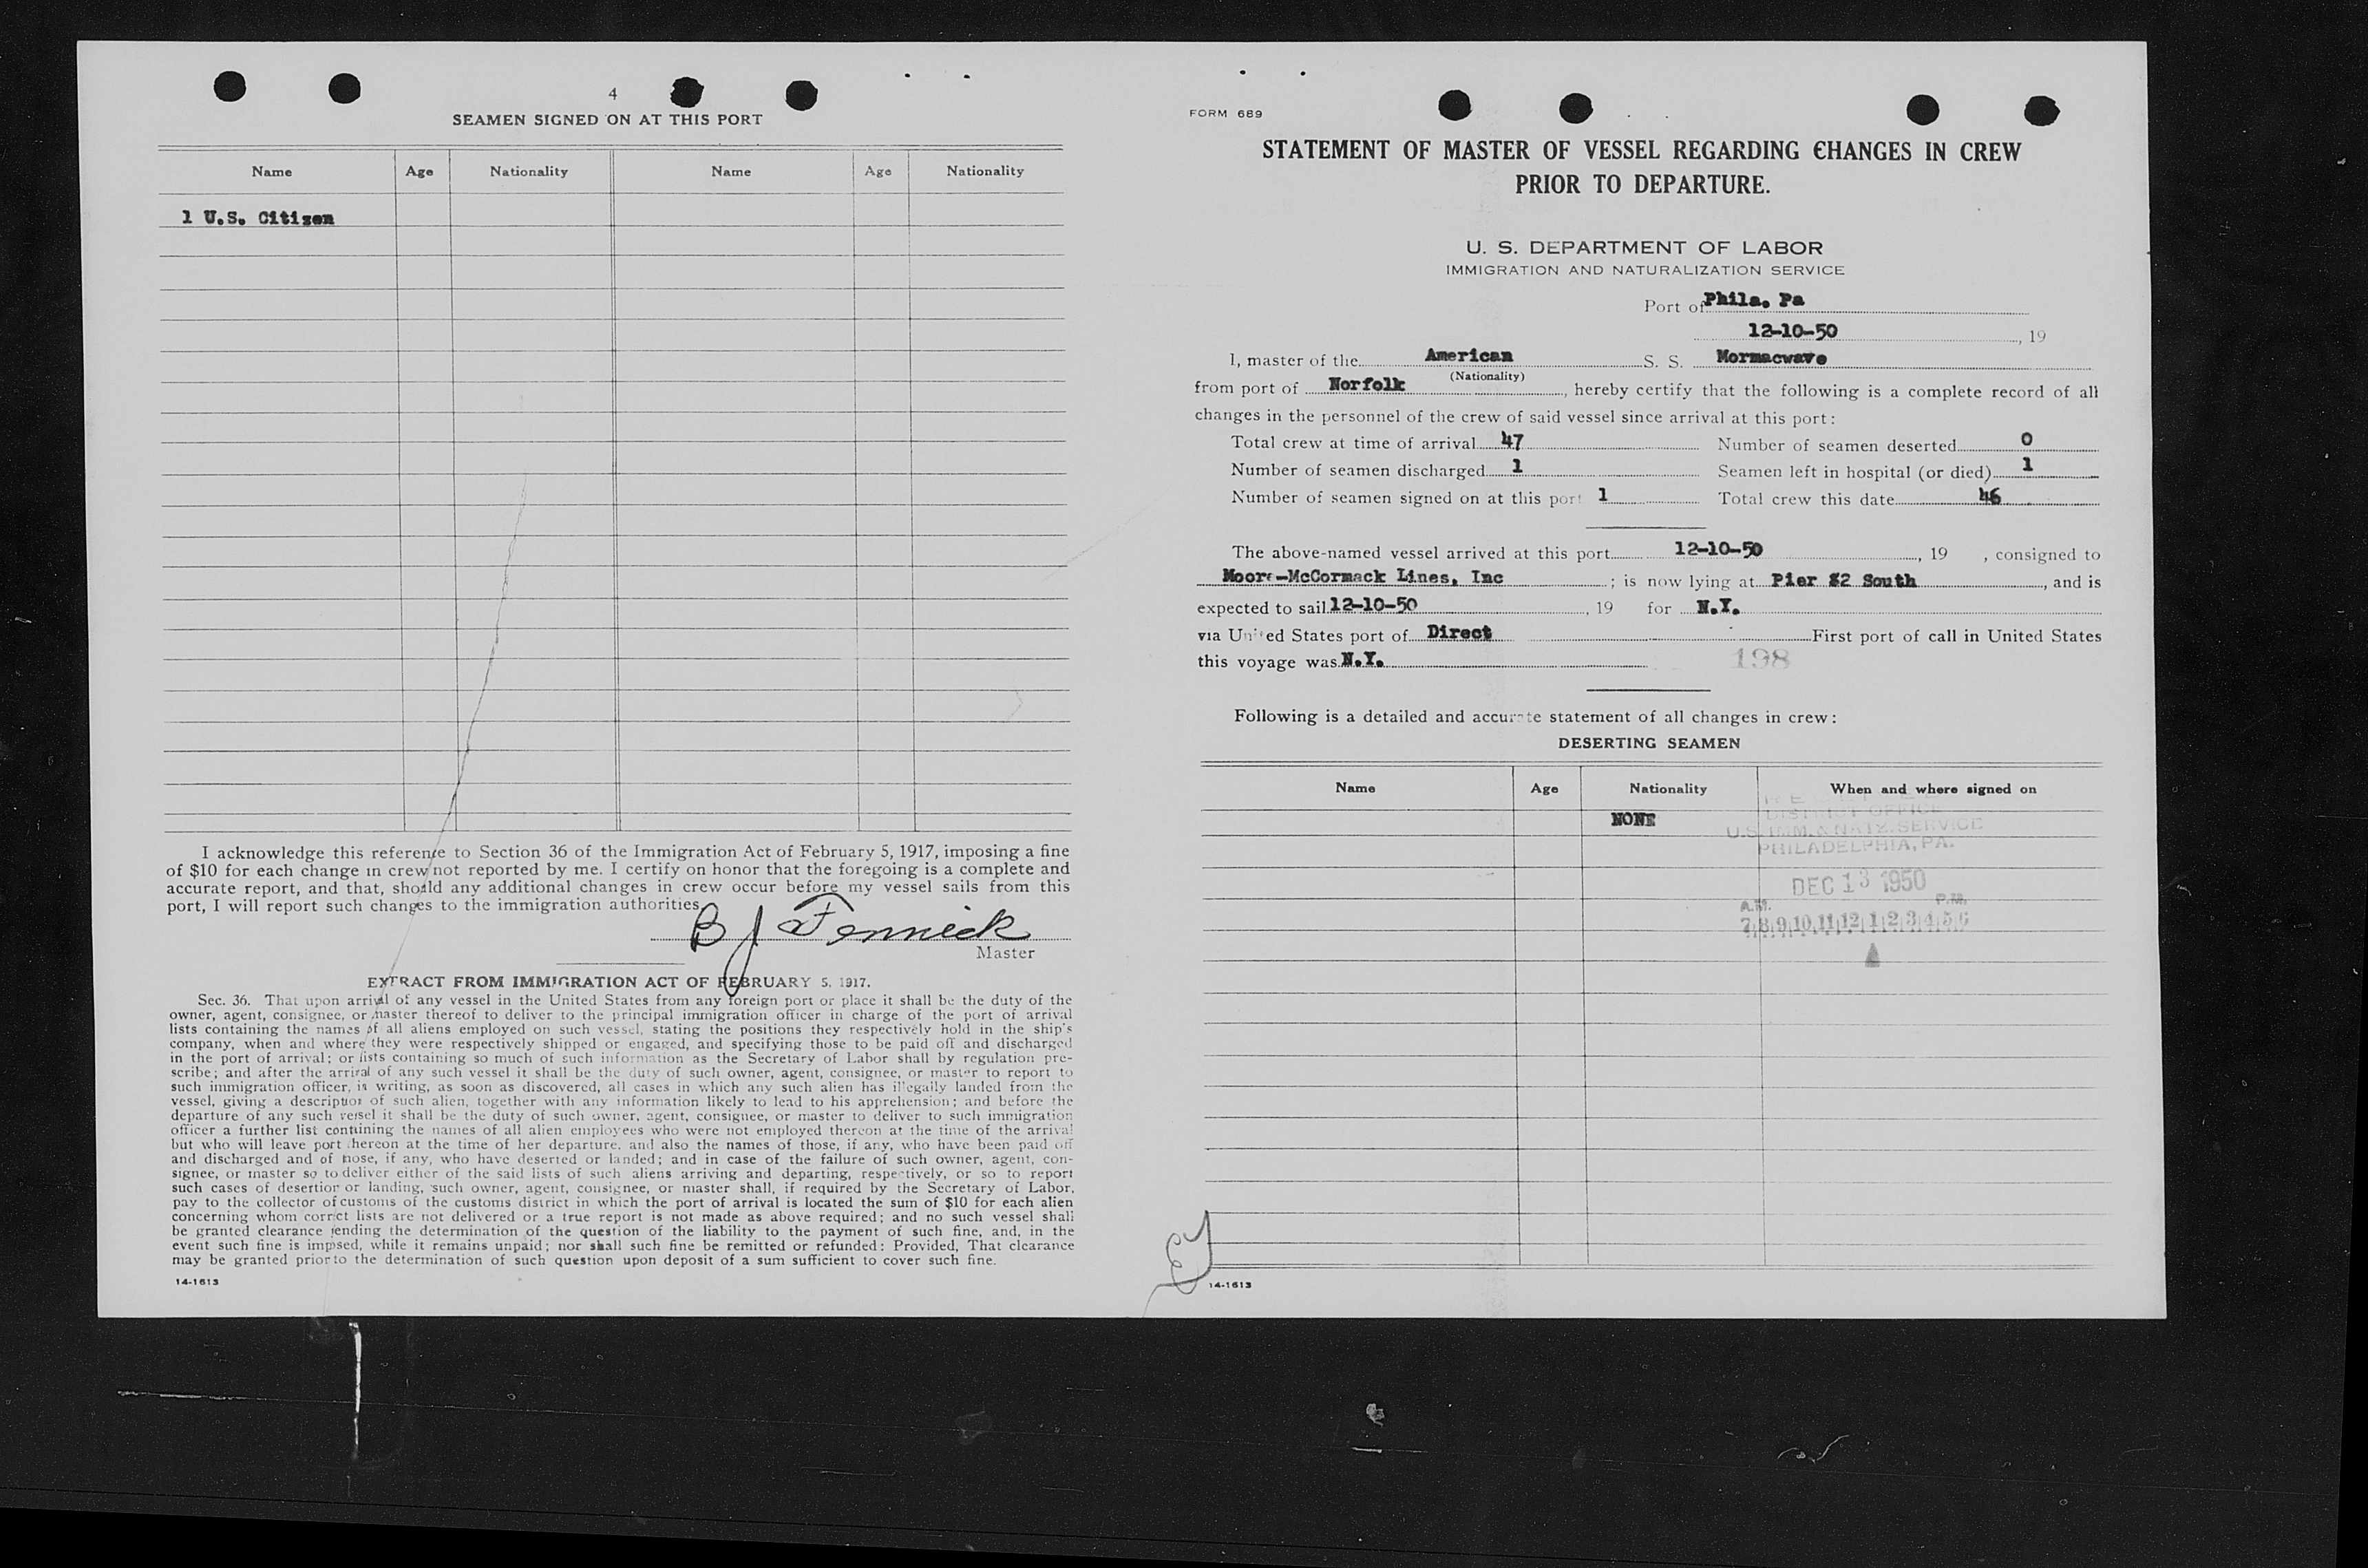 4
SEAMEN SIGNED ON AT THIS PORT
Name Age Nationality Name Age Nationality
1 U.S. Citizen
I acknowledge this reference to Section 36 of the Immigration Act of February 5, 1917, imposing a fine
of $10 for each change in crew not reported by me. I certify on honor that the foregoing is a complete and
accurate report, and that, should any additional changes in crew occur before my vessel sails from this
port, I will report such changes to the immigration authorities.
B J Fennick
Master
EXTRACT FROM IMMIGRATION ACT OF FEBRUARY 5, 1917.
Sec. 36. That upon arrival of any vessel in the United States from any foreign port or place it shall be the duty of the
owner, agent, consignee, or master thereof to deliver to the principal immigration officer in charge of the port of arrival
lists containing the names of all aliens employed on such vessel, stating the positions they respectively hold in the ship's
company, when and where they were respectively shipped or engaged, and specifying those to be paid off and discharged
in the port of arrival; or lists containing so much of such information as the Secretary of Labor shall by regulation pre-
scribe; and after the arrival of any such vessel it shall be the duty of such owner, agent, consignee, or master to report to
such immigration officer, in writing, as soon as discovered, all cases in which any such alien has illegally landed from the
vessel, giving a description of such alien, together with any information likely to lead to his apprehension; and before the
departure of any such vessel it shall be the duty of such owner, agent, consignee, or master to deliver to such immigration
officer a further list containing the names of all alien employees who were not employed thereon at the time of the arrival
but who will leave port thereon at the time of her departure, and also the names of those, if any, who have been paid off
and discharged and of those, if any, who have deserted or landed; and in case of the failure of such owner, agent, con-
signee, or master so to deliver either of the said lists of such aliens arriving and departing, respectively, or so to report
such cases of desertion or landing, such owner, agent, consignee, or master shall, if required by the Secretary of Labor,
pay to the collector of customs of the customs district in which the port of arrival is located the sum of $10 for each alien
concerning whom correct lists are not delivered or a true report is not made as above required; and no such vessel shall
be granted clearance pending the determination of the question of the liability to the payment of such fine, and, in the
event such fine is imposed, while it remains unpaid; nor shall such fine be remitted or refunded: Provided, That clearance
may be granted prior to the determination of such question upon deposit of a sum sufficient to cover such fine.
14-1613
FORM 689
STATEMENT OF MASTER OF VESSEL REGARDING CHANGES IN CREW
PRIOR TO DEPARTURE.
U. S. DEPARTMENT OF LABOR
IMMIGRATION AND NATURALIZATION SERVICE
Port of Phila. Pa
12-10-50, 19
I, master of the American S. S. Mormacwave
(Nationality)
from port of Norfolk, hereby certify that the following is a complete record of all
changes in the personnel of the crew of said vessel since arrival at this port:
Total crew at time of arrival 47 Number of seamen deserted 0
Number of seamen discharged 1 Seamen left in hospital (or died) 1
Number of seamen signed on at this port 1 Total crew this date 46
The above-named vessel arrived at this port 12-10-50, 19 , consigned to
Moore-McCormack Lines, Inc; is now lying at Pier 82 South, and is
expected to sail 12-10-50, 19 for N.Y.
via United States port of Direct First port of call in United States
this voyage was N.Y.
198
Following is a detailed and accurate statement of all changes in crew:
DESERTING SEAMEN
Name Age Nationality When and where signed on
NONE
DISTRICT OFFICE
U.S. IMM. & NATZ. SERVICE
PHILADELPHIA, PA.
DEC 13 1950
A.M. P.M.
7|8|9|10|11|12|1|2|3|4|5|6
14-1613